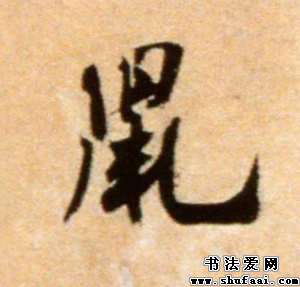 鼠
书法爱网
www.shufaai.com